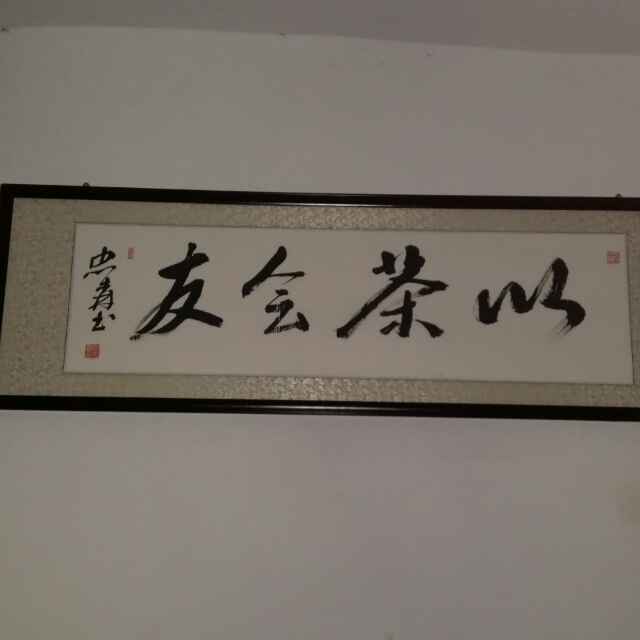 以茶会友
忠寿书